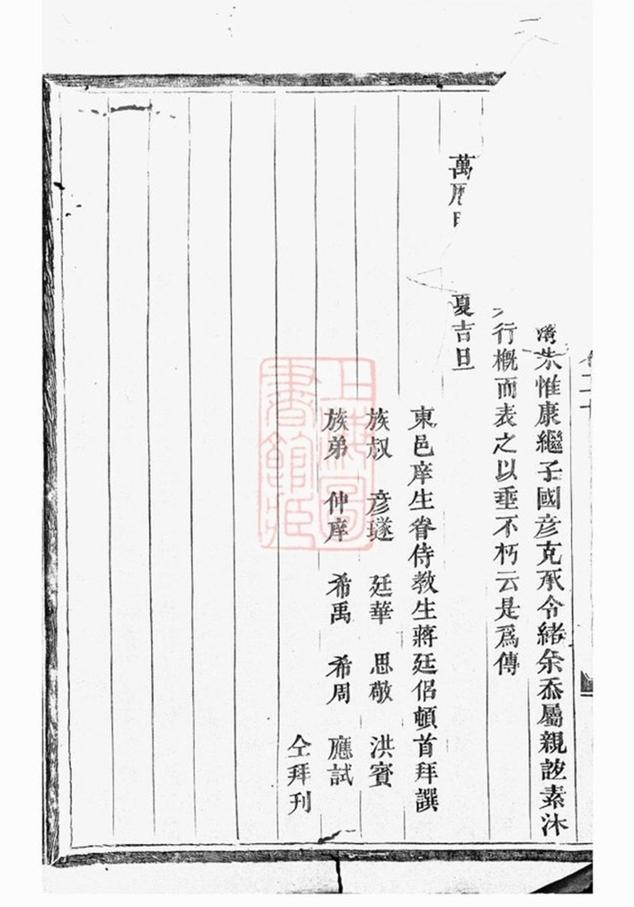 朱惟康繼子國彦克承令緒余忝屬親誼素沐
行概而表之以垂不朽云是爲傳
萬曆
夏吉旦
東邑庠生眷侍教生蔣廷侣頓首拜譔
族叔 彦璲 廷華 思敬 洪賓
族弟 仲庠 希禹 希周 應試
仝拜刊
上海圖書館藏
二十